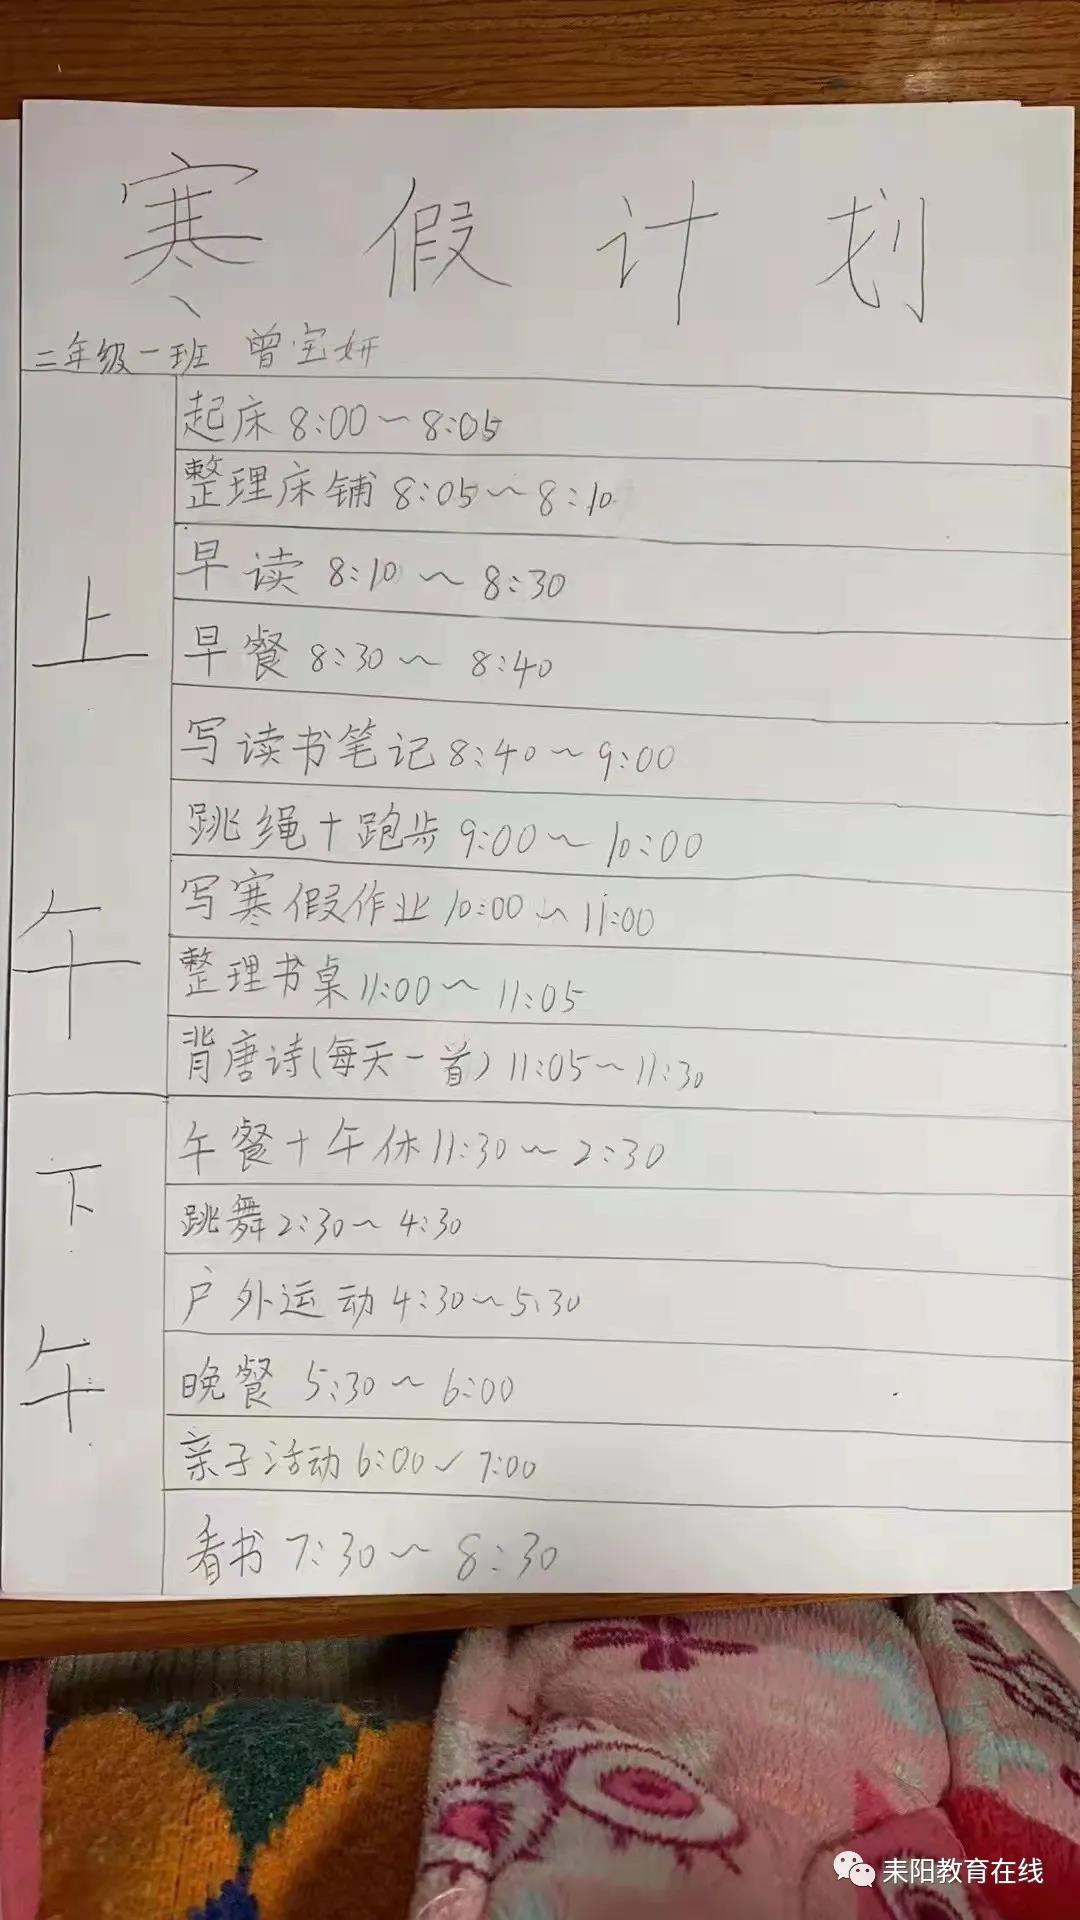 寒假计划
二年级一班 曾宝妍
上午
起床 8:00~8:05
整理床铺 8:05~8:10
早读 8:10~8:30
早餐 8:30~8:40
写读书笔记 8:40~9:00
跳绳+跑步 9:00~10:00
写寒假作业 10:00~11:00
整理书桌 11:00~11:05
背唐诗(每天一首) 11:05~11:30
下午
午餐+午休 11:30~2:30
跳舞 2:30~4:30
户外运动 4:30~5:30
晚餐 5:30~6:00
亲子活动 6:00~7:00
看书 7:30~8:30
耒阳教育在线